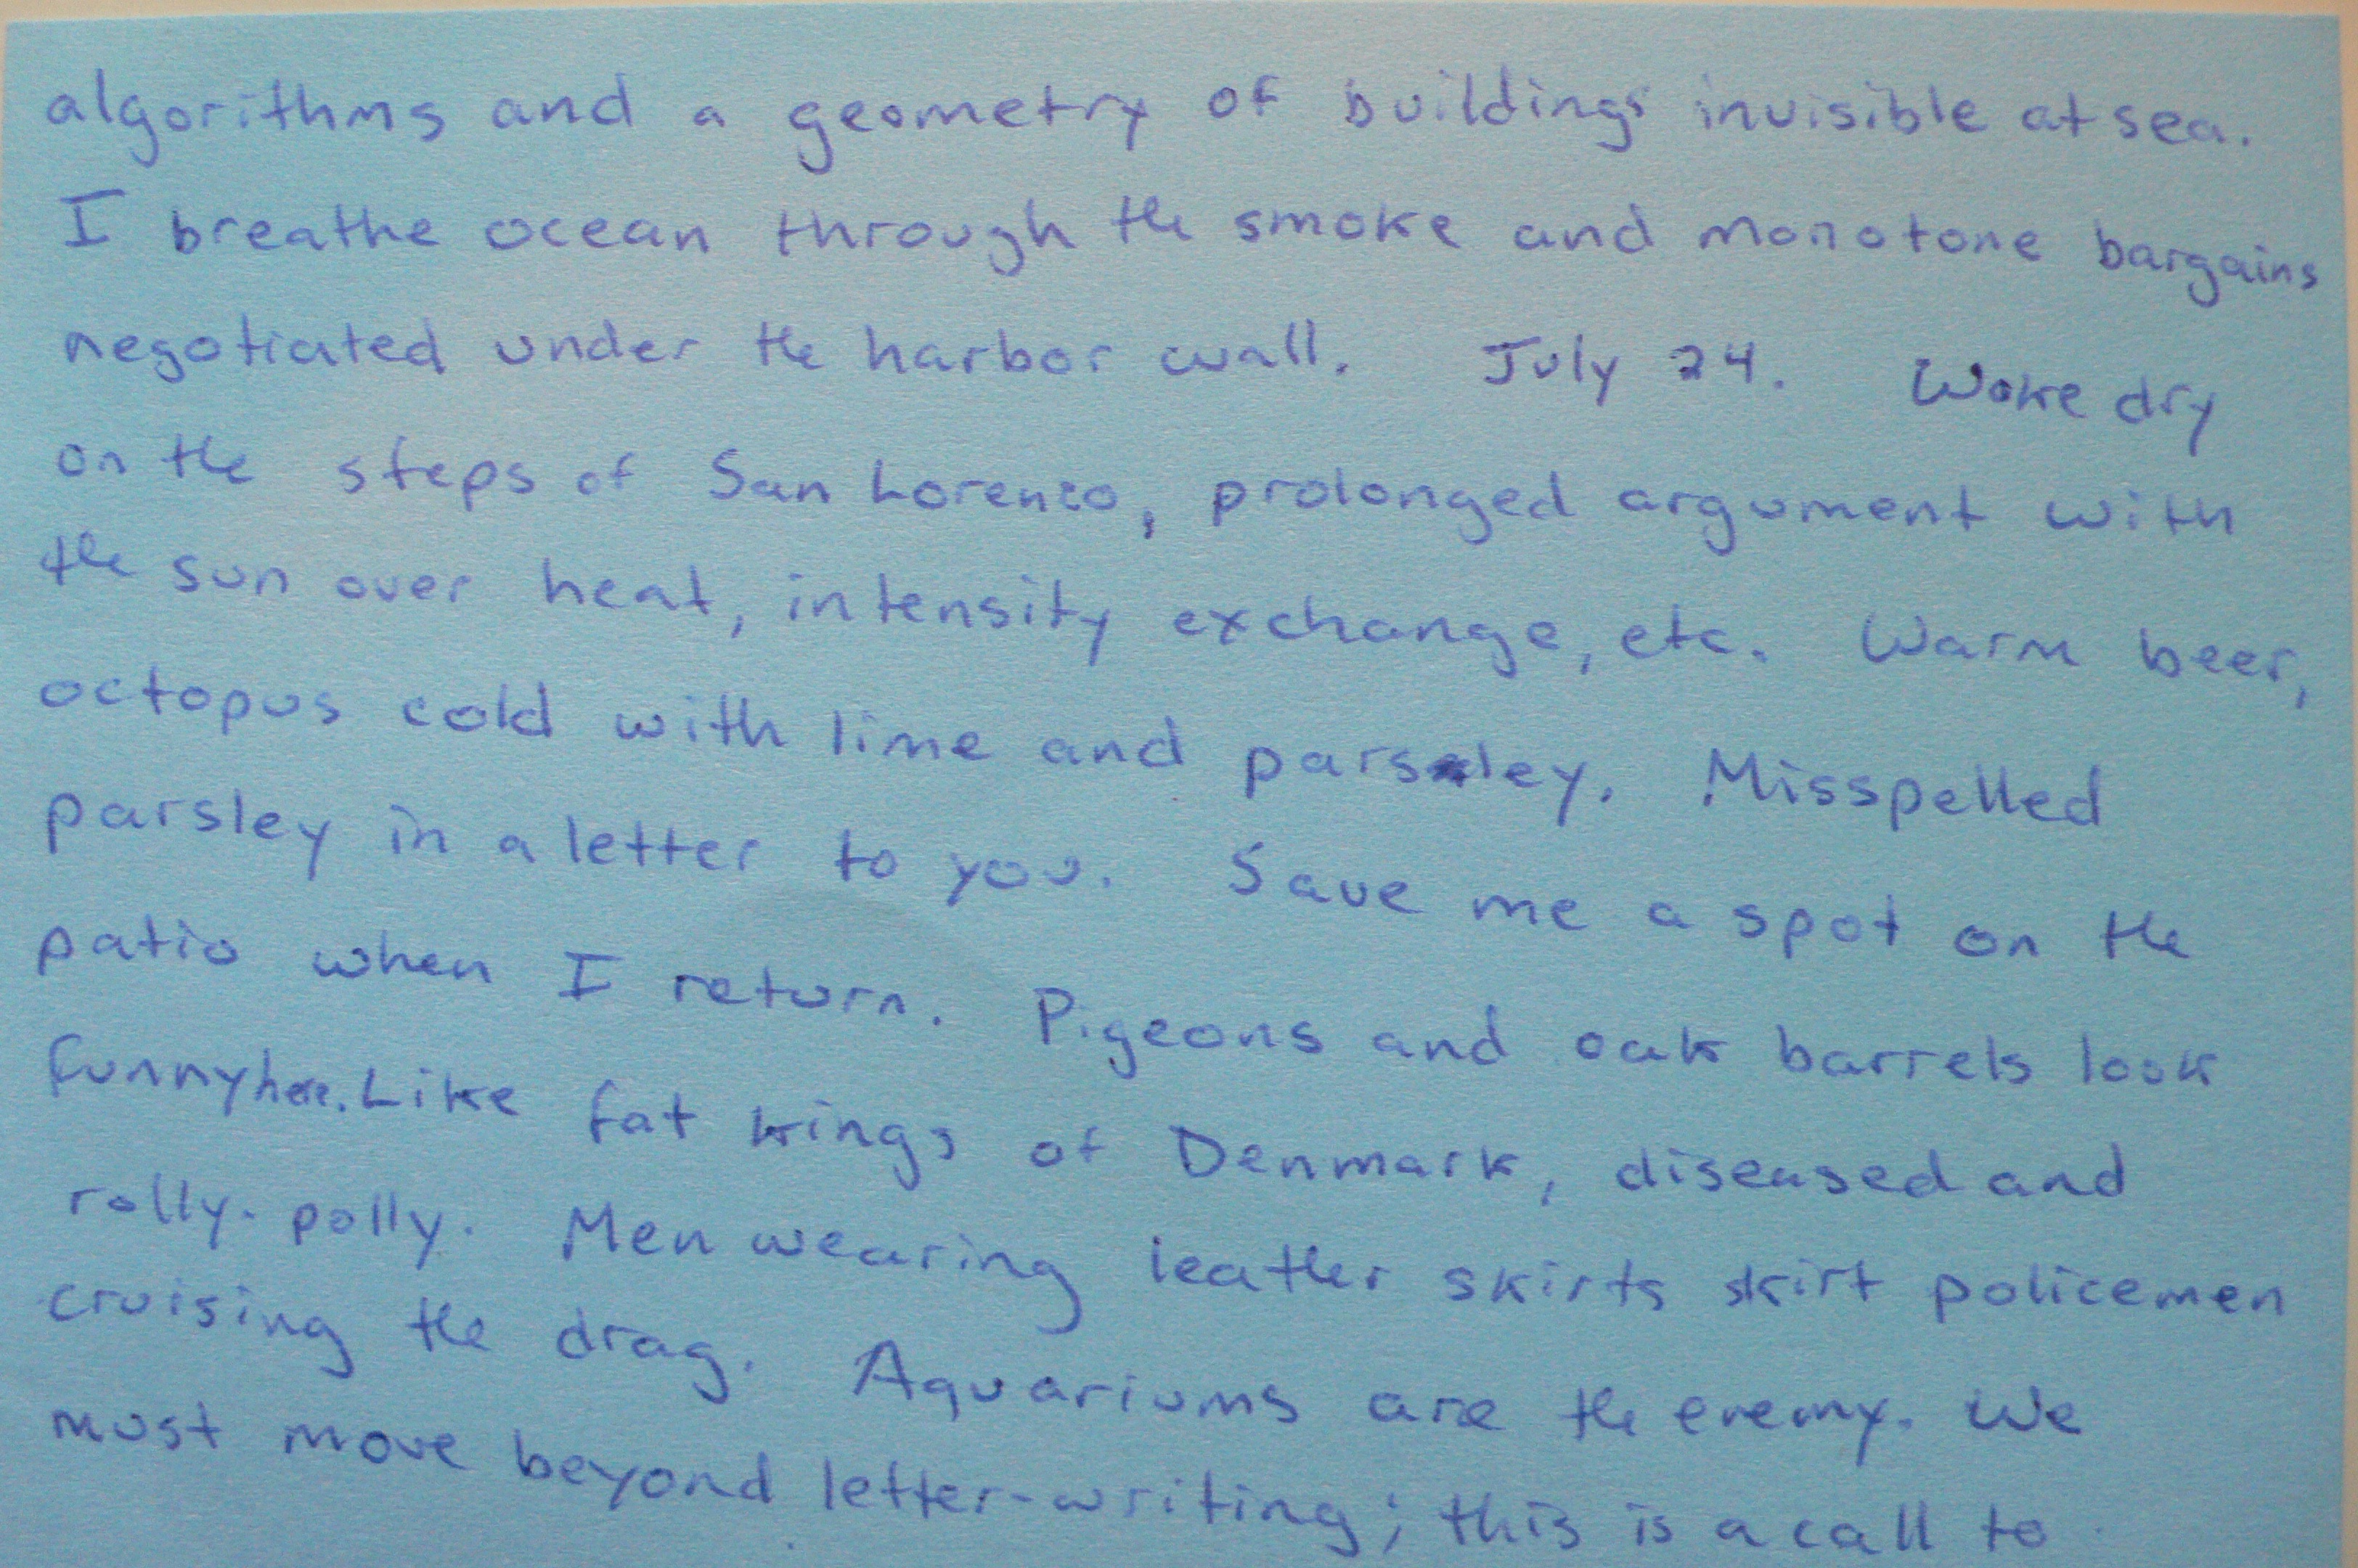 algorithms and a geometry of buildings invisible at sea.
I breathe ocean through the smoke and monotone bargains
negotiated under the harbor wall. July 24. Woke dry
on the steps of San Lorenzo, prolonged argument with
the sun over heat, intensity exchange, etc. Warm beer,
octopus cold with lime and parsley. Misspelled
parsley in a letter to you. Save me a spot on the
patio when I return. Pigeons and oak barrels look
funny here. Like fat kings of Denmark, diseased and
rolly-polly. Men wearing leather skirts skirt policemen
cruising the drag. Aquariums are the enemy. We
must move beyond letter-writing; this is a call to